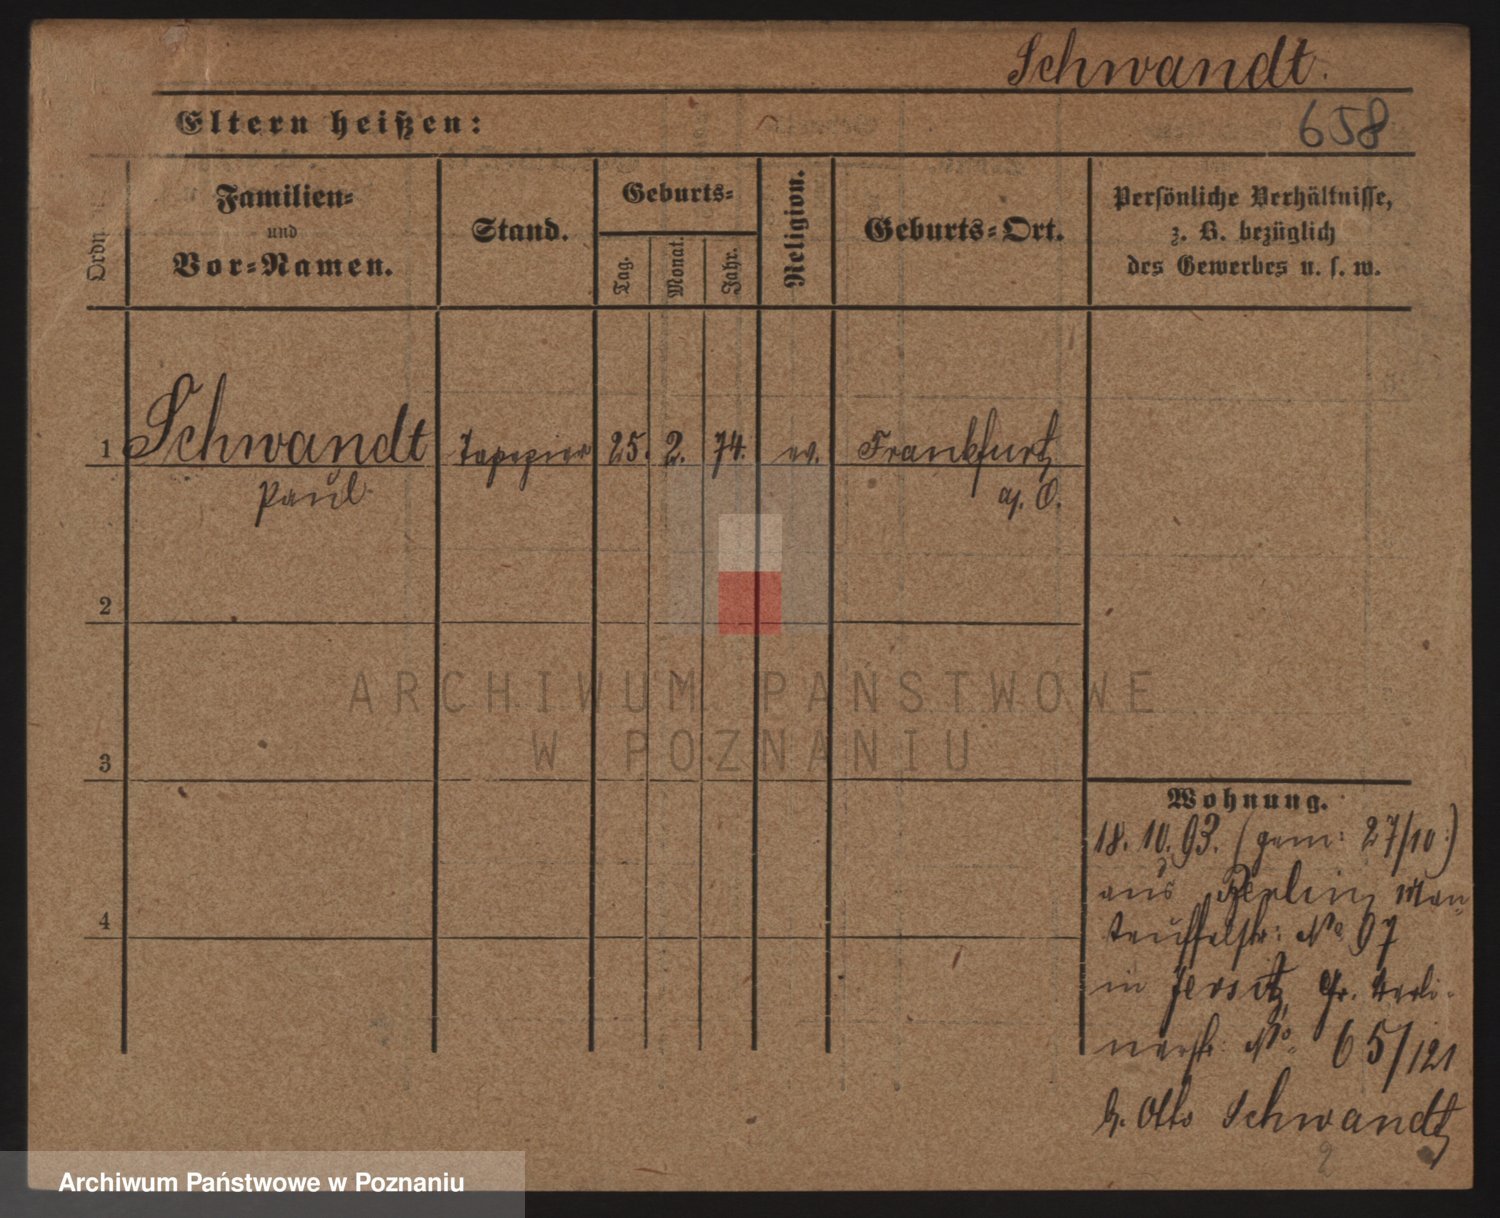 Schwandt.
Eltern heißen:
658
Ordn
Familien-
und
Vor-Namen.
Stand.
Geburts-
Tag.
Monat.
Jahr.
Religion.
Geburts-Ort.
Persönliche Verhältnisse,
z. B. bezüglich
des Gewerbes u. s. w.
1 Schwandt Tapezier 25. 2. 74. ev. Frankfurt
Paul a/. O.
2
3
4
ARCHIWUM PAŃSTWOWE
W POZNANIU
Wohnung.
18. 10. 93. (gem: 27/10.)
aus Berlin, Man-
teuffelstr: No 97
in Jersitz, Gr. Berli-
nerstr: No. 65/121
b. Otto Schwandt
2
Archiwum Państwowe w Poznaniu